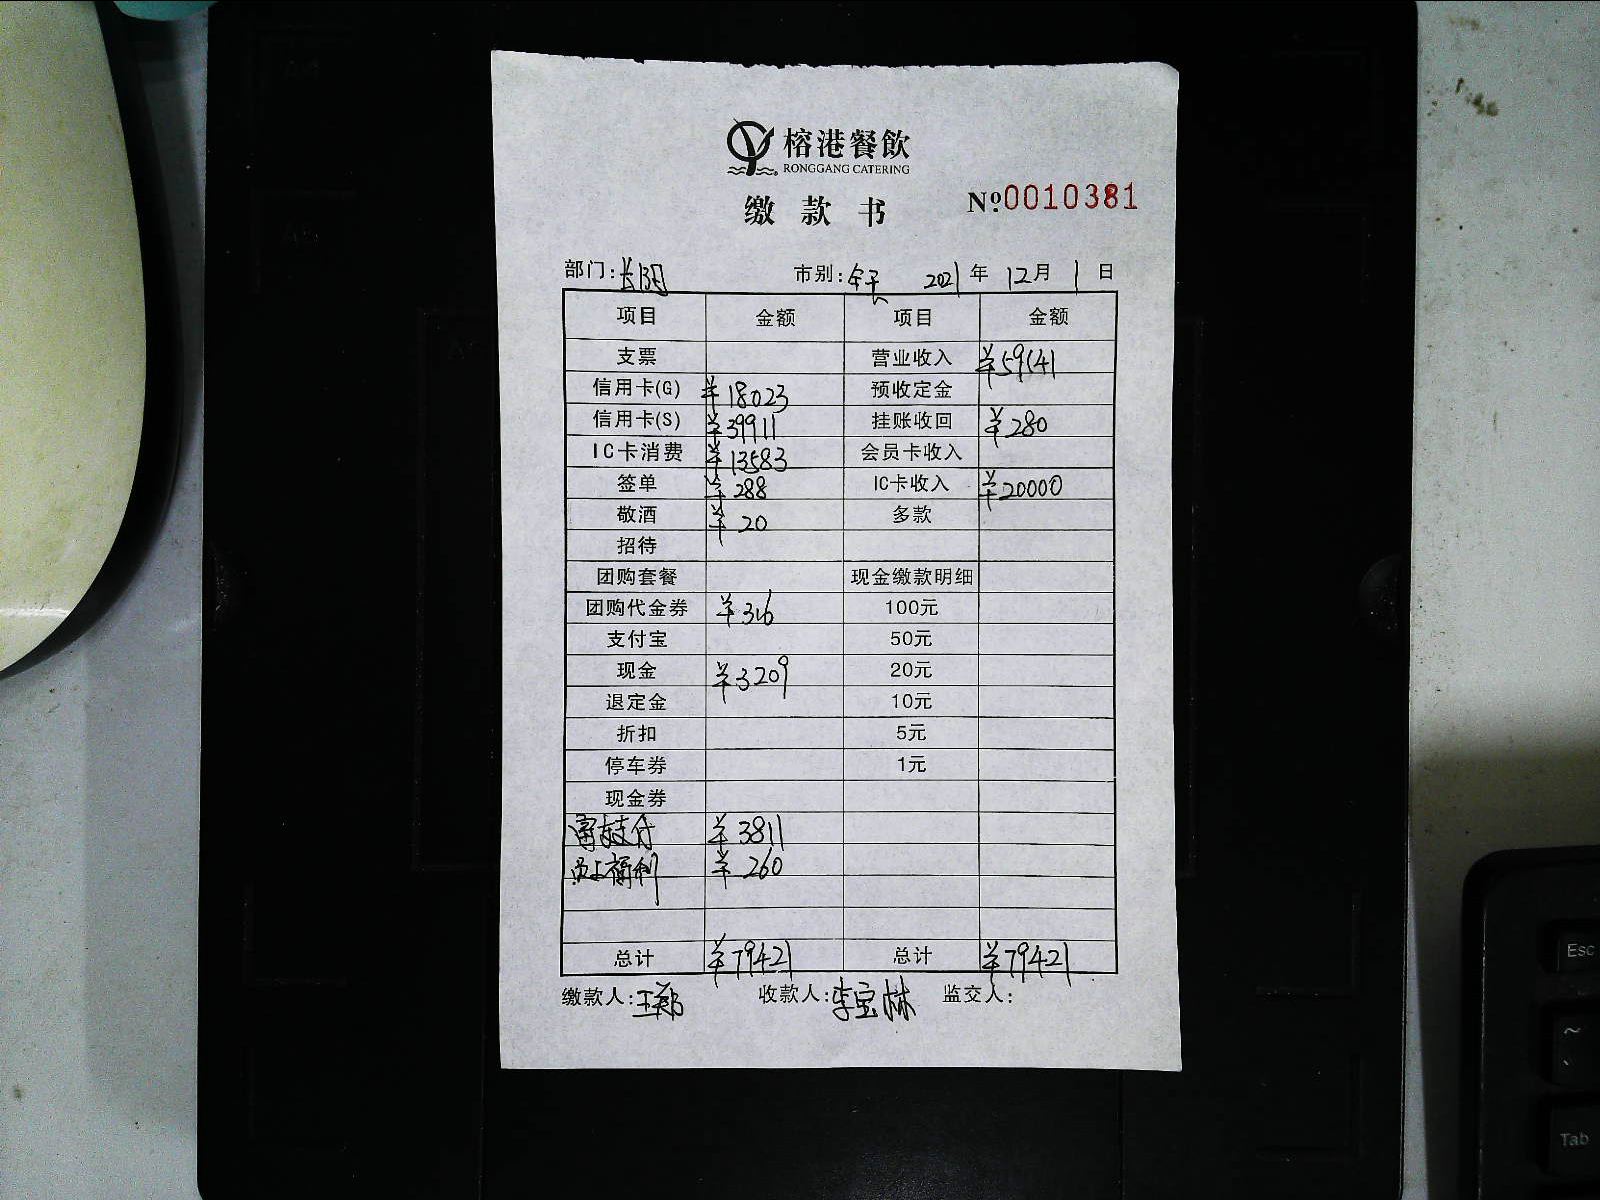 榕港餐飲
RONGGANG CATERING
缴款书
Nº:0010381
部门:长阳 市别:全天 2021年12月1日
项目 金额 项目 金额
支票 营业收入 ¥59141
信用卡(G) ¥18023 预收定金
信用卡(S) ¥39911 挂账收回 ¥280
IC卡消费 ¥13583 会员卡收入
签单 ¥288 IC卡收入 ¥20000
敬酒 ¥20 多款
招待
团购套餐 现金缴款明细
团购代金券 ¥316 100元
支付宝 50元
现金 ¥3209 20元
退定金 10元
折扣 5元
停车券 1元
现金券
富友支付 ¥3811
员工福利 ¥260
总计 ¥79421 总计 ¥79421
缴款人:王 收款人:李宝林 监交人:
Esc
~
Tab